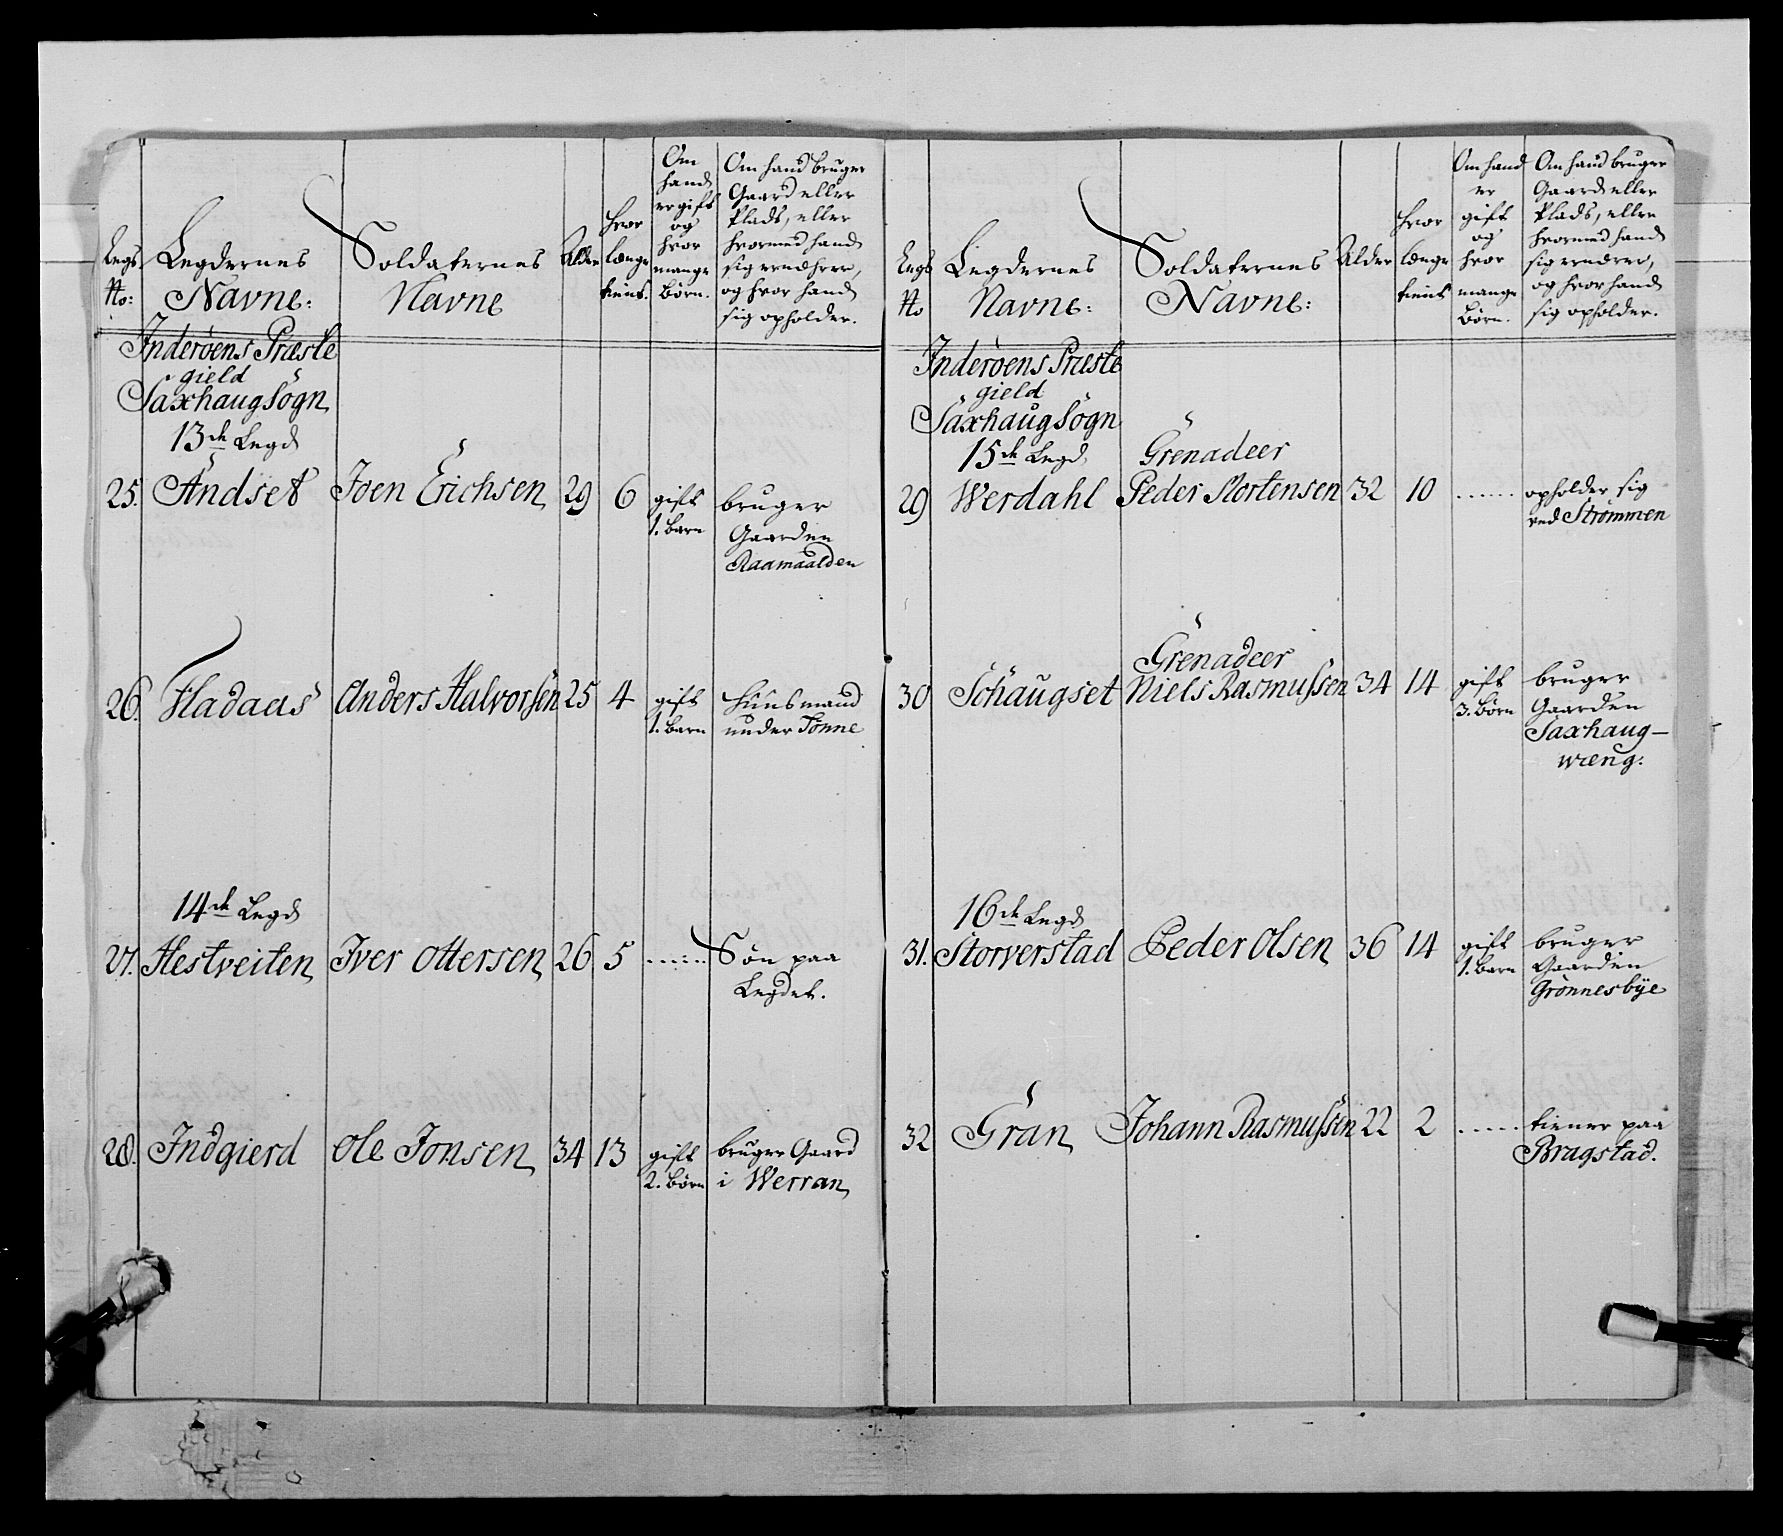 Legs No:
Legdernes Navne:
Soldaternes Navne
Alder
hvor længe tient.
Om hand er gift og hvor mange Børn.
Om hand bruger Gaard eller Plads, eller hvormed hand sig ernærer, og hvor hand sig opholder.
Inderöens Præste
gield
Saxhaug Sogn
13de Legd
25. Andset Joen Erichsen 29 6 gift bruger
1. barn Gaarden
Raamaalden
26. Fladaas Anders Halvorsen 25 4 gift Huusmand
1. barn under Tönne
14de Legd
27. Hestveiten Iver Ottersen 26 5 ...... Søn paa
Legdet.
28. Indgierd Ole Jonsen 34 13 gift bruger Gaard
2. børn i Werran
Legs No
Legdernes Navne:
Soldaternes Navne:
Alder
hvor længe tient
Om hand er gift og hvor mange Børn.
Om hand bruger Gaard eller Plads, eller hvormed hand sig ernærer, og hvor hand sig opholder.
Inderöens Præste
gield
Saxhaug Sogn
15de Legd Grenadeer
29 Werdahl Peder Mortensen 32 10 ...... opholder sig
ved Strömmen
Grenadeer
30 Schaugset Niels Rasmussen 34 14 gift bruger
3. børn Gaarden
Saxhaug-
wreng:
16de Legd
31. Storverstad Peder Olsen 36 14 gift bruger
1. barn Gaarden
Grönnesbÿe
32 Gran Johann Rasmussen 22 2 ..... tiener paa
Bragstad.